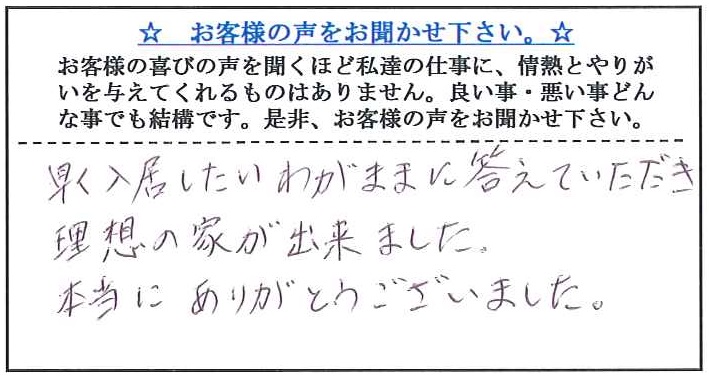 ☆ お客様の声をお聞かせ下さい。☆
お客様の喜びの声を聞くほど私達の仕事に、情熱とやりが
いを与えてくれるものはありません。良い事・悪い事どん
な事でも結構です。是非、お客様の声をお聞かせ下さい。
早く入居したいわがままに答えていただき
理想の家が出来ました。
本当にありがとうございました。